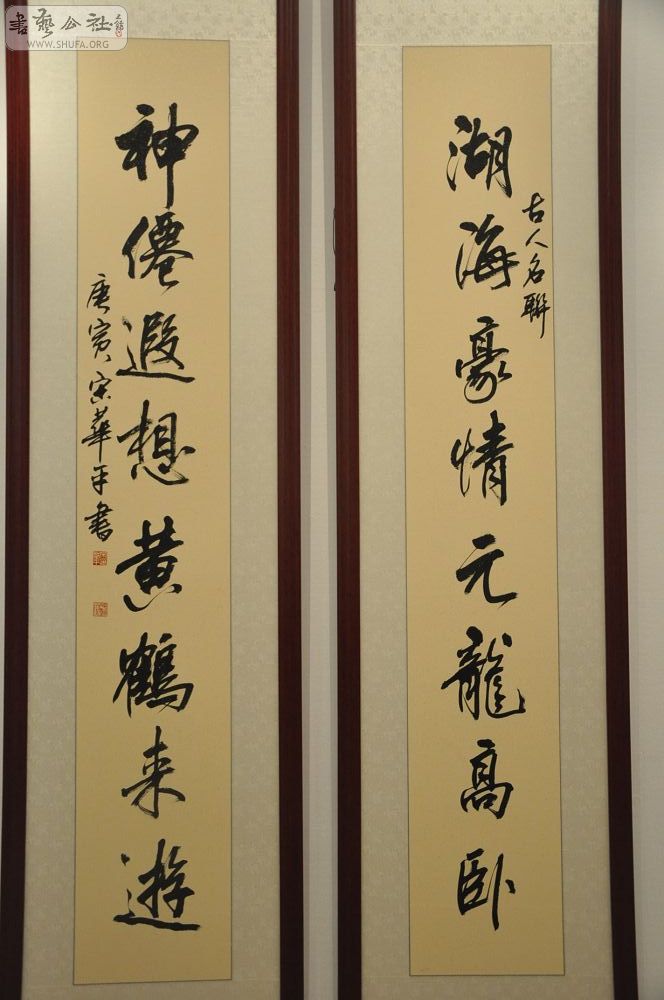 湖海豪情元龍高卧
古人名聯
神僊遐想黄鶴来遊
庚寅宋華平書
書藝公社
WWW.SHUFA.ORG